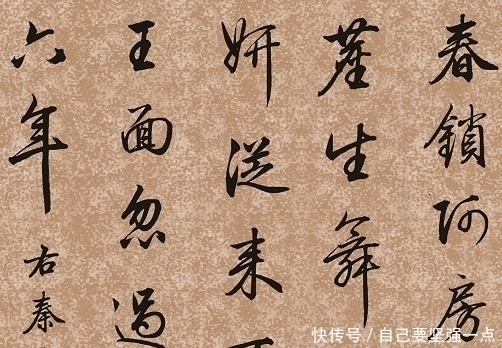 春鎖阿房
生舞
妍從来
王面忽過
六年 右秦
快传号/自己要坚强一点